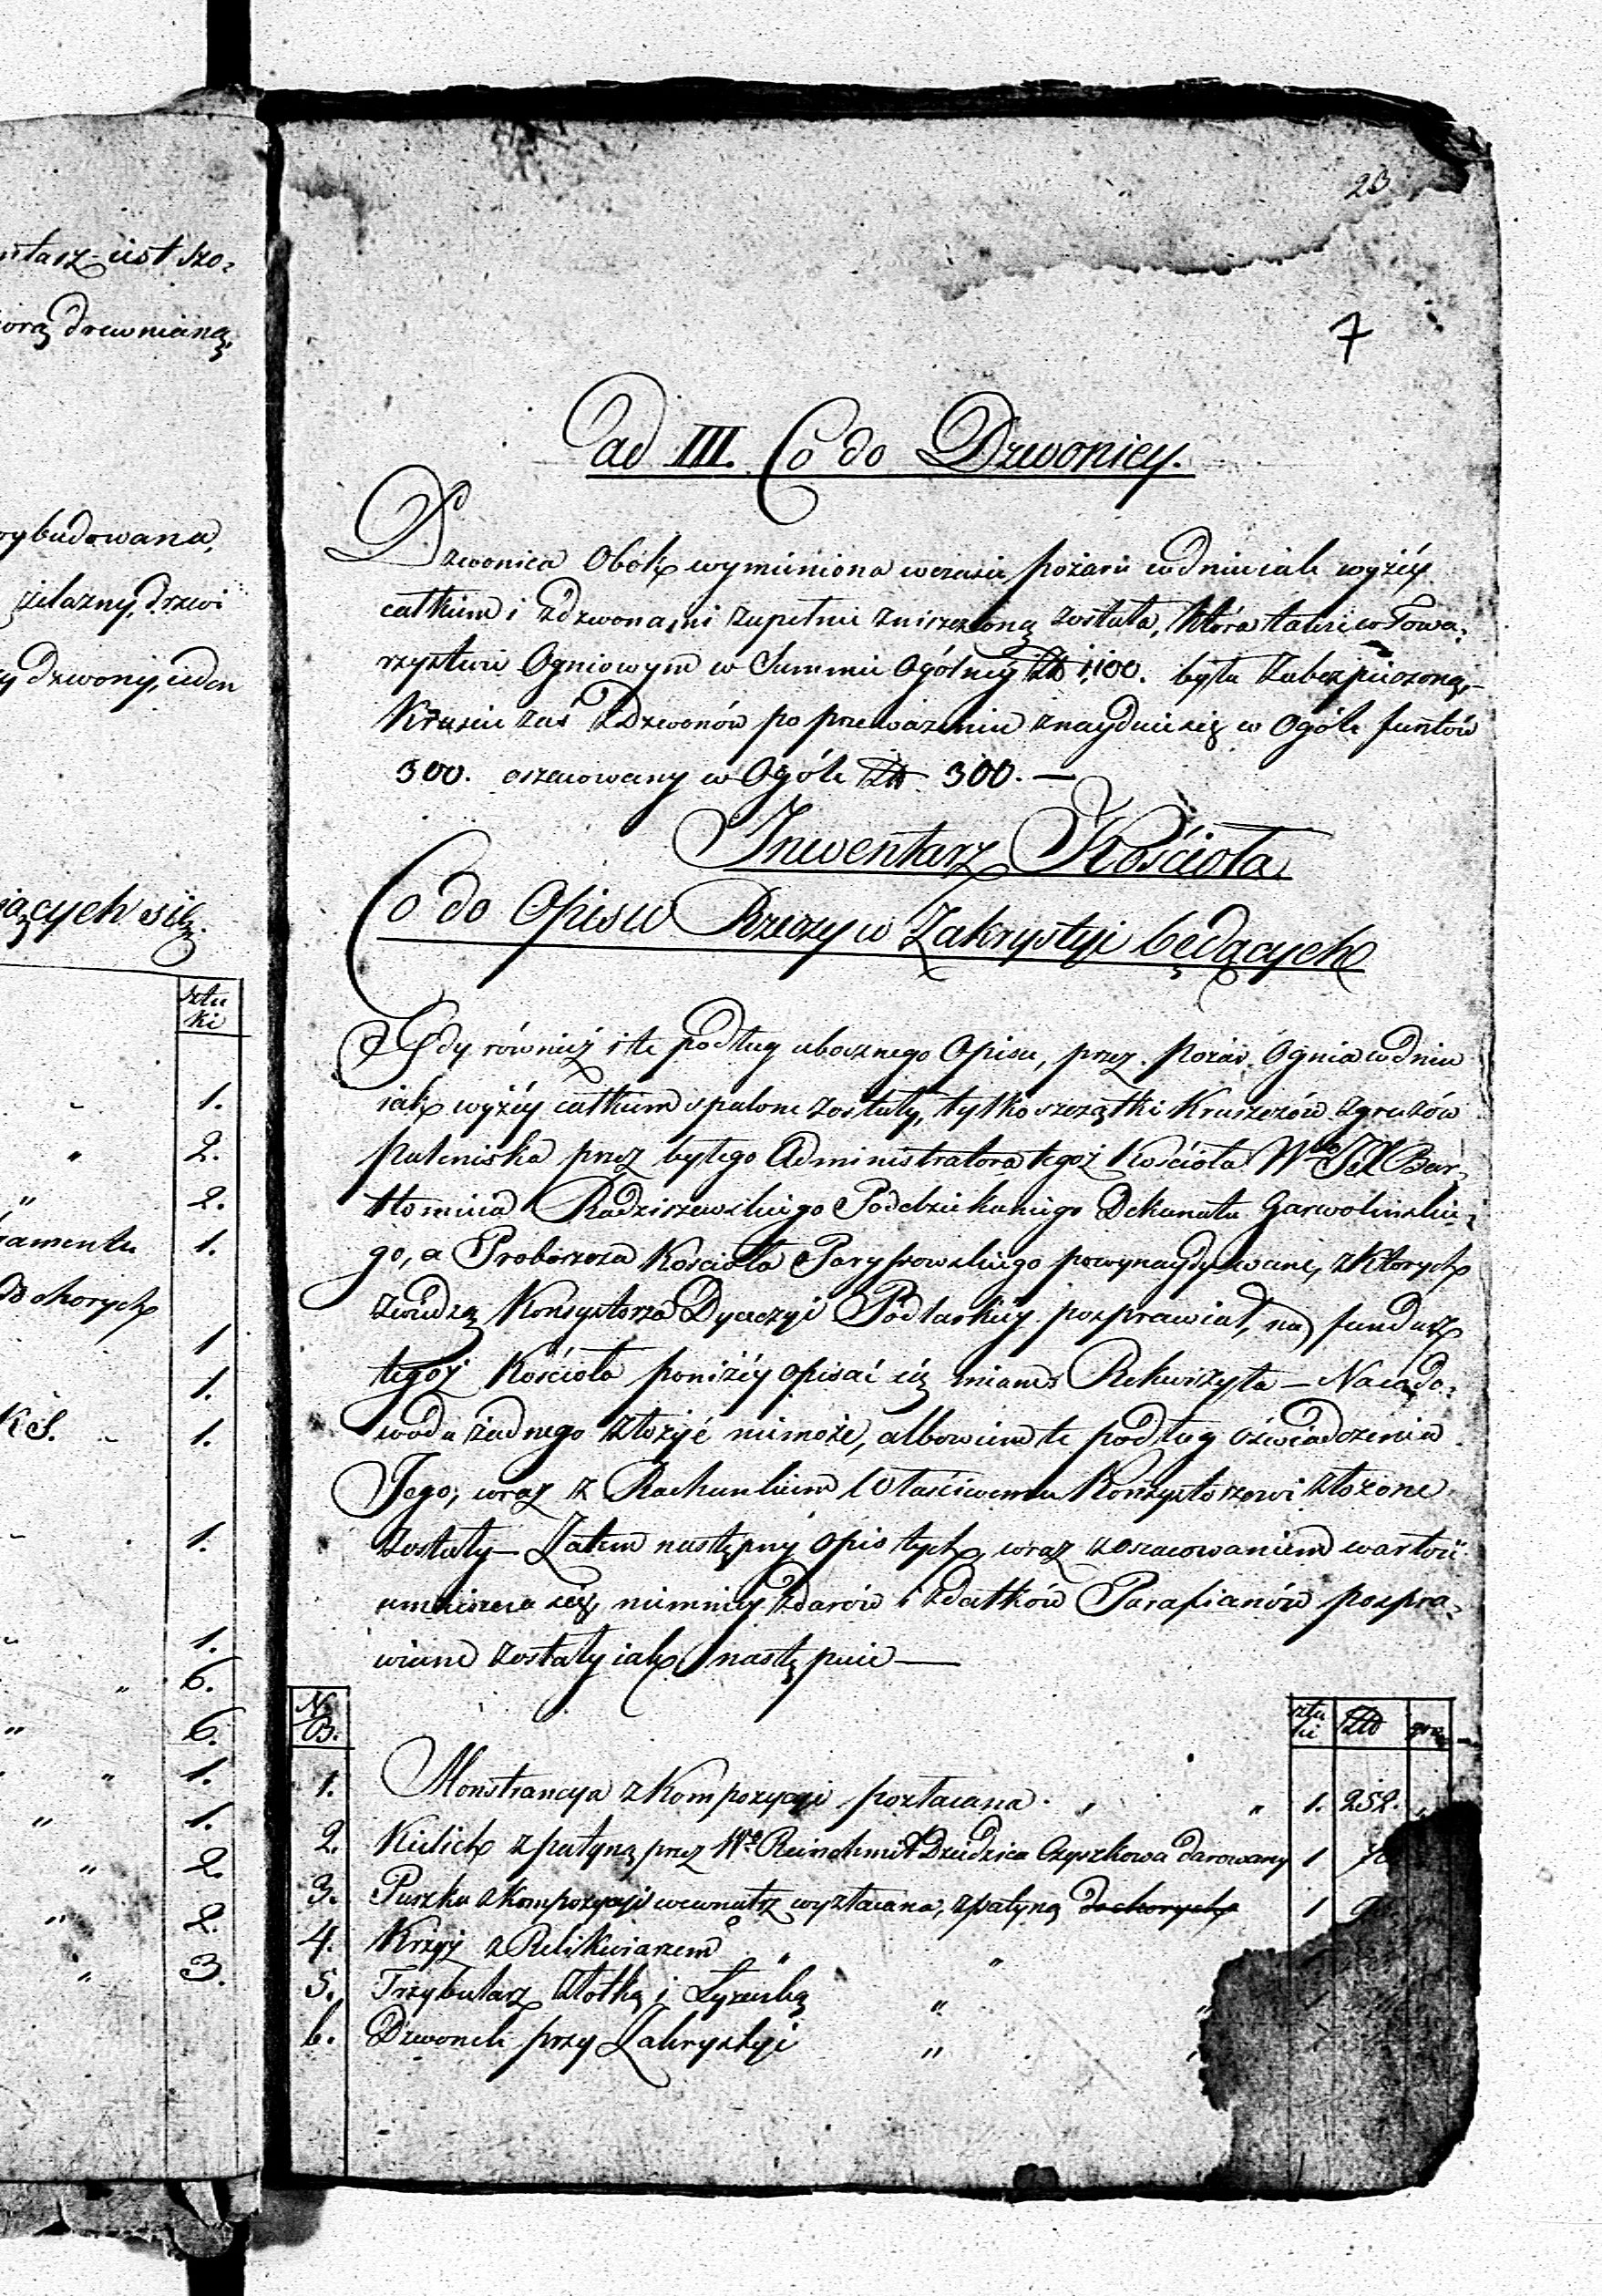 ntarz iist szo-
orą drewnianą,
wybudowana,
żelazny, drzwi
y dzwony, ieden
iących się.
sztu
ki
1.
2.
2.
ramentu 1.
do chorych
1
1.
1.
1.
1.
6.
6.
1.
1.
2.
2.
3.
23
7
ad III. Co do Dzwonicy.
Dzwonica Obok wymieniona wczasie pożaru wdniu iak wyżéy
całkiem i zdzwonami zupełnie zniszczoną została, która także w Towa-
rzystwie Ogniowym w Summie Ogólnéy Złt 1,100. była zabezpieczoną,-
Kruszcu zaś z Dzwonów po przeważeniu znayduie się w Ogóle funtów
300. oszacowany w Ogóle Złt 300. —
Inwentarz Kościoła
Co do Opisu Rzeczy w Zakrystyi będących
Gdy również i te podług ubocznego Opisu, przez pożar Ognia w dniu
iak wyżéy całkiem spalone zostały, tylko szczątki Kruszców zgruzów
paleniska przez byłego Administratora tegoż Kościoła W° JX Bar-
tłomieia Radziszewskiego Poddziekaniego Dekanatu Garwolińskie-
go, a Proboszcza Kościoła Parysowskiego powynaydywane, z których
zwiedzą Konsystorza Dyecezyi Podlaskiéy posprawiał, na fundusz
tegoż Kościoła poniżéy opisać się miane Rekwizyta — Na co do-
wodu żadnego złożyć niemoże, albowiem te podług oświadczenia
Jego, wraz z Rachunkiem Właściwemu Konsystorzowi złożone
zostały — Zatem następny opis tych wraz zoszacowaniem wartości
umieszcza się, niemniéy zdarów i zdatków Parafianów pospra-
wiane zostały iak następuie —
N.
B. sztu
ki Złt grz
1. Monstrancya z kompozycyi pozłacana . „ „ 1. 252. „
2. Kielich z patyną przez W° Reinschmit Dziedzica Czyszkowa darowany 1
3. Puszka z kompozycyi wewnątrz wyzłacana, z patyną do chorych 1
4. Krzyż z Relikwiarzem „ „
5. Trzybularz złotką i Łyżeczką „ „
6. Dzwonek przy Zakrystyi „ „